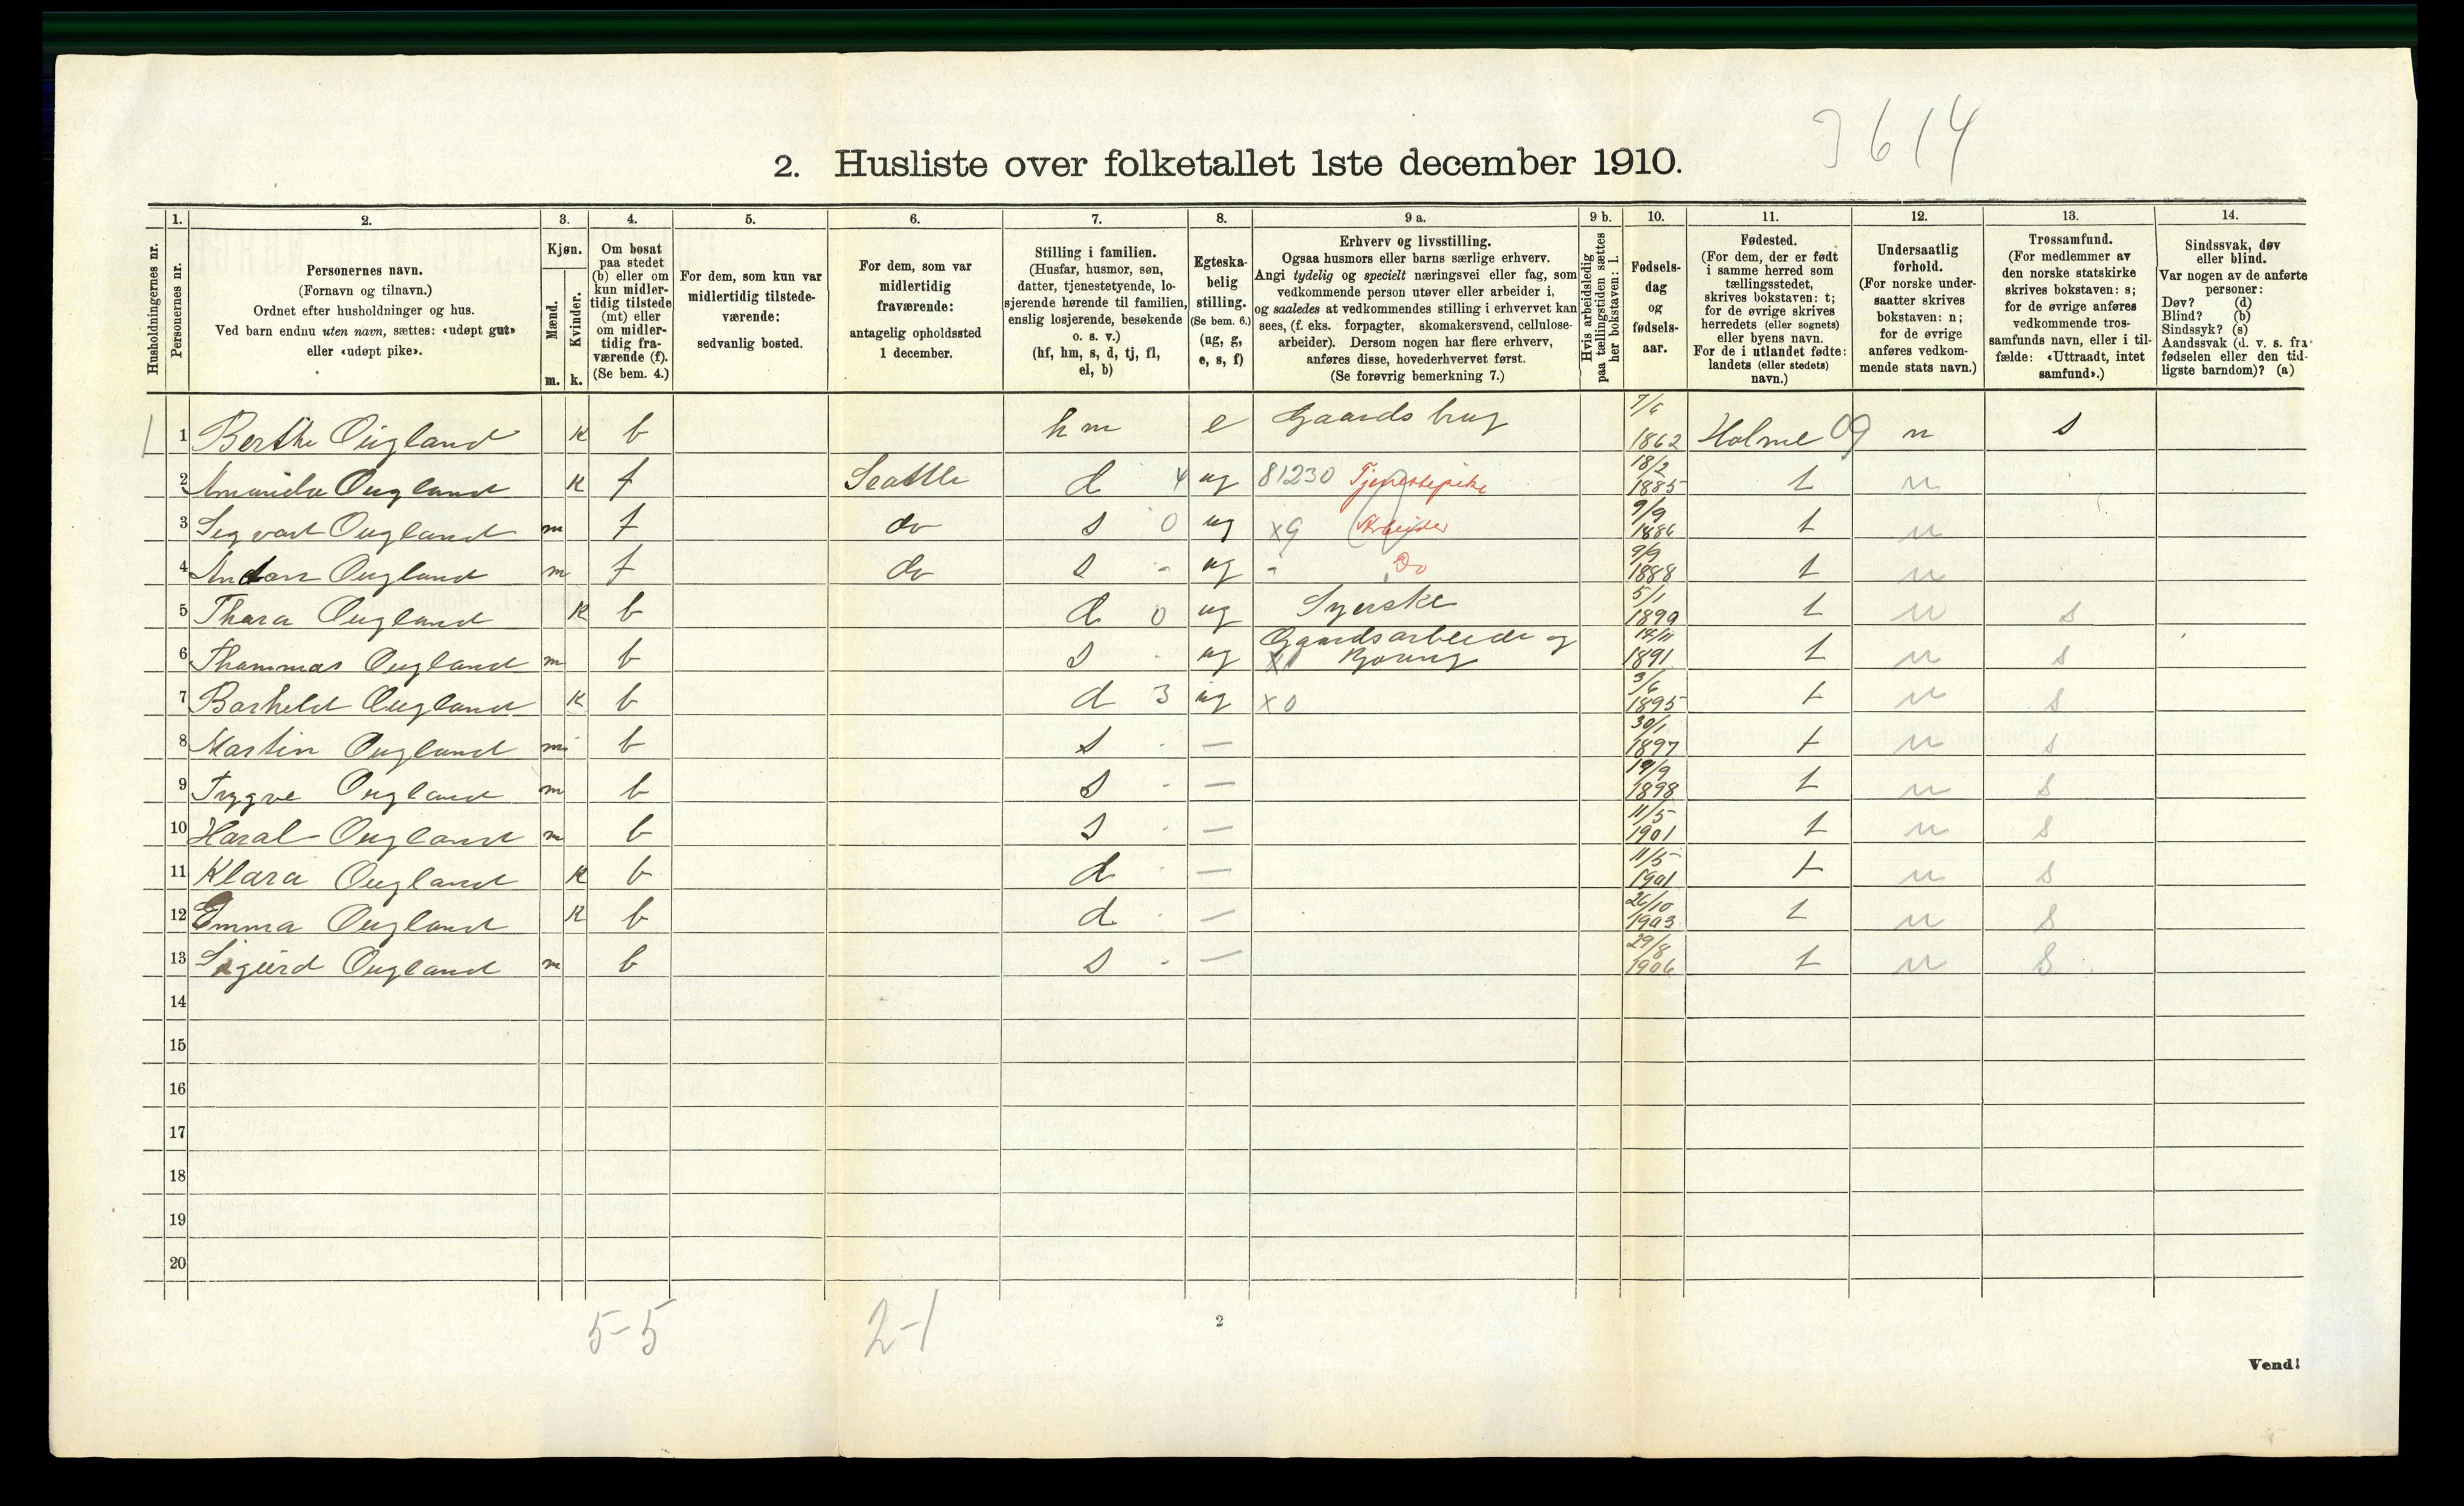 3614
2. Husliste over folketallet 1ste december 1910.
Husholdningernes nr.
1.
Personernes nr.
2.
Personernes navn.
(Fornavn og tilnavn.)
Ordnet efter husholdninger og hus.
Ved barn endnu uten navn, sættes: «udøpt gut»
eller «udøpt pike».
3.
Kjøn.
Mænd.
Kvinder.
m. k.
4.
Om bosat
paa stedet
(b) eller om
kun midler-
tidig tilstede
(mt) eller
om midler-
tidig fra-
værende (f).
(Se bem. 4.)
5.
For dem, som kun var
midlertidig tilstede-
værende:
sedvanlig bosted.
6.
For dem, som var
midlertidig
fraværende:
antagelig opholdssted
1 december.
7.
Stilling i familien.
(Husfar, husmor, søn,
datter, tjenestetyende, lo-
sjerende hørende til familien,
enslig losjerende, besøkende
o. s. v.)
(hf, hm, s, d, tj, fl,
el, b)
8.
Egteska-
belig
stilling.
(Se bem. 6.)
(ug, g,
e, s, f)
9 a.
Erhverv og livsstilling.
Ogsaa husmors eller barns særlige erhverv.
Angi tydelig og specielt næringsvei eller fag, som
vedkommende person utøver eller arbeider i,
og saaledes at vedkommendes stilling i erhvervet kan
sees, (f. eks. forpagter, skomakersvend, cellulose-
arbeider). Dersom nogen har flere erhverv,
anføres disse, hovederhvervet først.
(Se forøvrig bemerkning 7.)
9 b.
Hvis arbeidsledig
paa tællingstiden sættes
her bokstaven: l.
10.
Fødsels-
dag
og
fødsels-
aar.
11.
Fødested.
(For dem, der er født
i samme herred som
tællingsstedet,
skrives bokstaven: t;
for de øvrige skrives
herredets (eller sognets)
eller byens navn.
For de i utlandet fødte:
landets (eller stedets)
navn.)
12.
Undersaatlig
forhold.
(For norske under-
saatter skrives
bokstaven: n;
for de øvrige
anføres vedkom-
mende stats navn.)
13.
Trossamfund.
(For medlemmer av
den norske statskirke
skrives bokstaven: s;
for de øvrige anføres
vedkommende tros-
samfunds navn, eller i til-
fælde: «Uttraadt, intet
samfund».)
14.
Sindssvak, døv
eller blind.
Var nogen av de anførte
personer:
Døv? (d)
Blind? (b)
Sindssyk? (s)
Aandssvak (d. v. s. fra
fødselen eller den tid-
ligste barndom)? (a)
1 1 Berthe Ougland k b hm e Gaardsbrug 7/6 1862 Holme 09 n s
2 Amanda Ougland k f Seattle d 4 ug 81230 Tjenestepike 18/2 1885 t n
3 Segvart Ougland m f do s 0 ug x9 Arbeider 9/9 1886 t n
4 Ougland m f do s - ug - Do 9/9 1888 t n
5 Thora Ougland k b d 0 ug Syerske 5/1 1890 t n s
6 Thommas Ougland m b s - ug x1 Gaardsarbeide og 14/11 1891 t n s
7 Borhild Ougland k b d 3 ug x0 3/6 1895 t n s
8 Martin Ougland m b s - — 30/1 1897 t n s
9 Trygve Ougland m b s - — 19/9 1898 t n s
10 Haral Ougland m b s - — 11/5 1901 t n s
11 Klara Ougland k b d - — 11/5 1901 t n s
12 Emma Ougland k b d - — 26/10 1903 t n s
13 Sigurd Ougland m b s - — 29/8 1906 t n s
14
15
16
17
18
19
20
5-5
2-1
2
Vend!